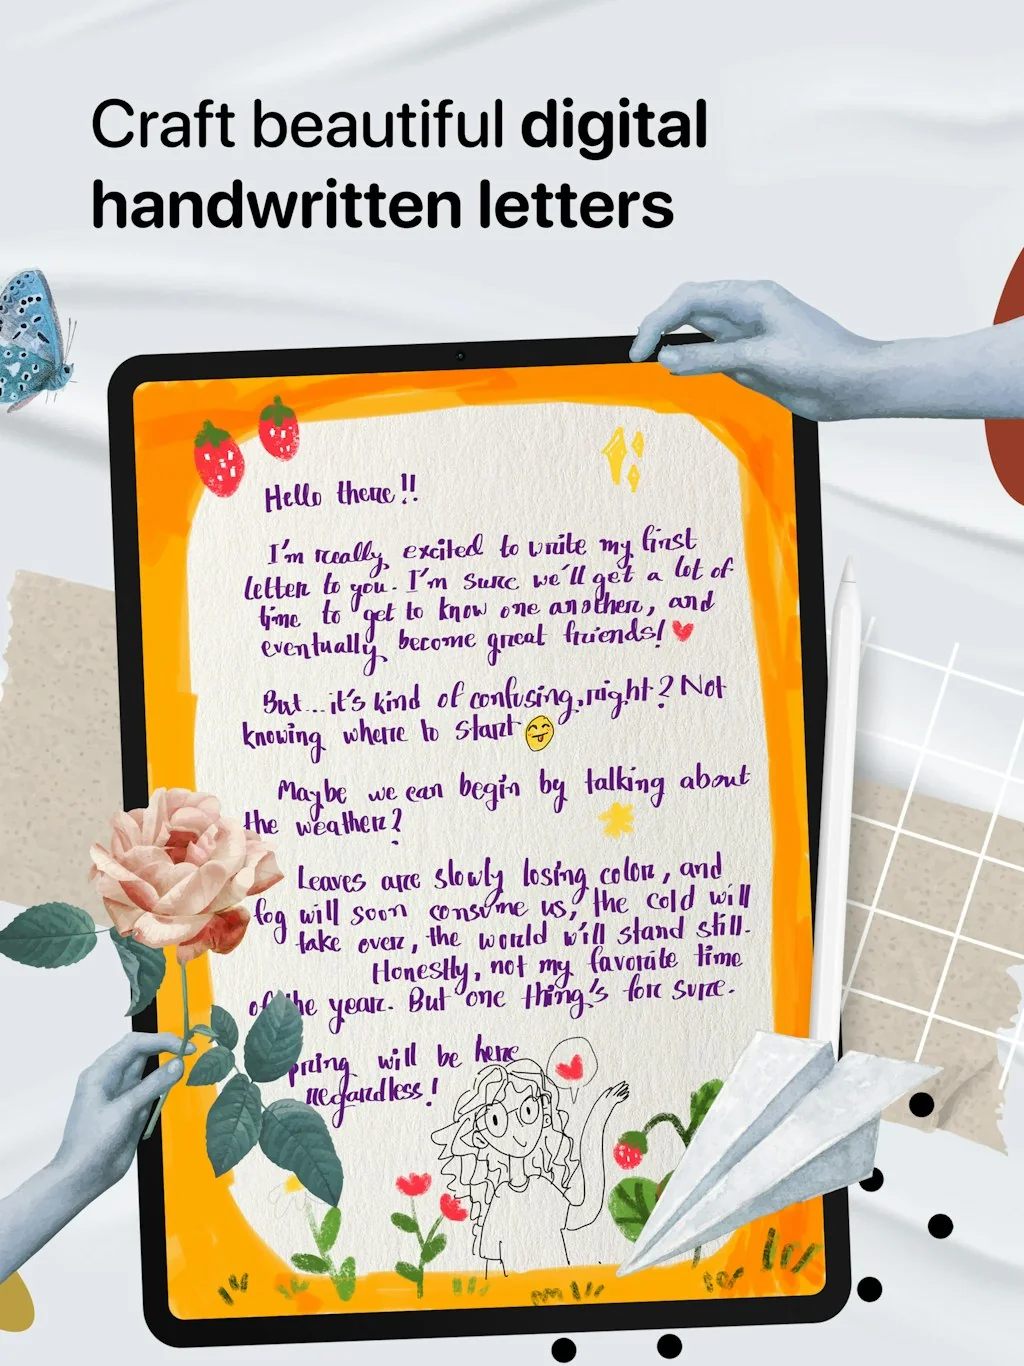 Craft beautiful digital
handwritten letters
Hello there!!
I'm really excited to write my first
letter to you. I'm sure we'll get a lot of
time to get to know one another, and
eventually become great friends!
But... it's kind of confusing, right? Not
knowing where to start
Maybe we can begin by talking about
the weather?
Leaves are slowly losing color, and
fog will soon consume us, the cold will
take over, the world will stand still.
Honestly, not my favorite time
of the year. But one thing's for sure.
pring will be here
regardless!